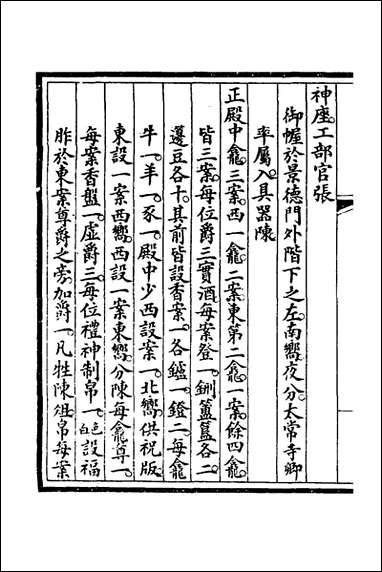 神座。工部官張
御幄於景德門外階下之左。南嚮。夜分。太常寺卿
率屬入。具器陳
正殿中龕。三案。西一龕。二案。東第二龕。一案。餘四龕。
皆三案。每位爵三。實酒。每案登一。鉶簠簋各二。
籩豆各十。其前皆設香案一。各鑪一。鐙二。每龕
牛一。羊一。豕一。殿中少西設案一。北嚮。供祝版。
東設一案。西嚮。西設一案。東嚮。分陳每龕尊一。
每案香盤一。虛爵三。每位禮神制帛一。色設福
胙於東案尊爵之旁。加爵一。凡牲陳俎。帛每案